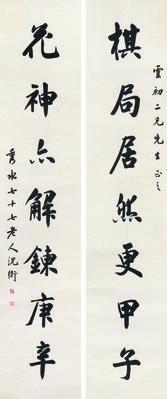 雲初二兄先生正之
棋局居然更甲子
花神亦解鍊庚辛
秀水七十七老人沈衛